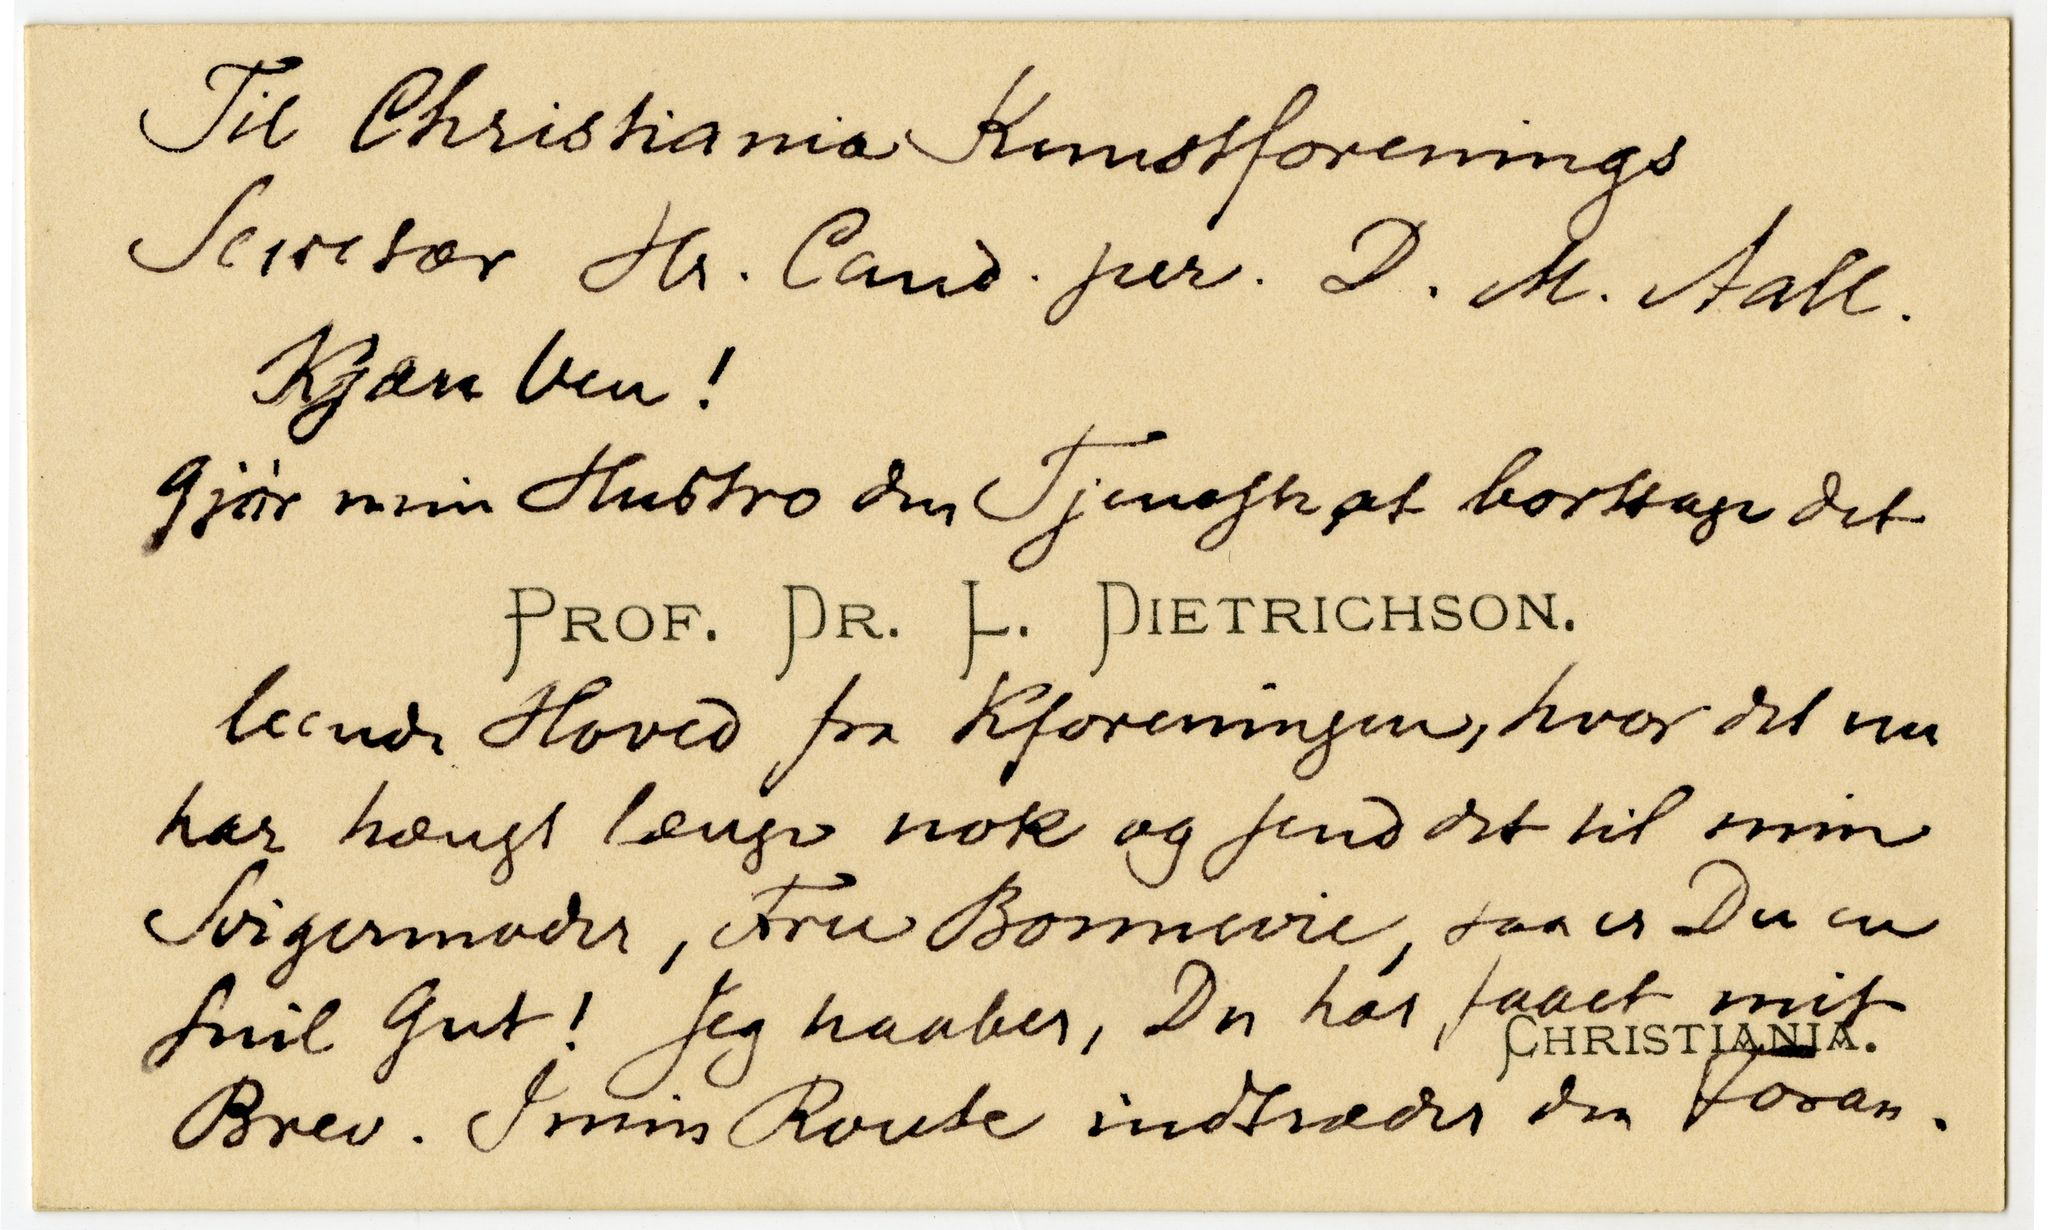 Til Christiania Kunstforenings
Secretær Hr. Cand. jur. D. M. Aall.
Kjære Ven!
Gjør min Hustro den Tjeneste at borttage det
PROF. DR. L. DIETRICHSON.
leende Hoved fra Kforeningen, hvor det nu
har hængt længe nok og send det til min
Svigermoder, Fru Bonnevie, saa er Du en
snil Gut! Jeg haaber, Du har faaet mit
CHRISTIANIA.
Brev. I min Route indtræder den Foran.